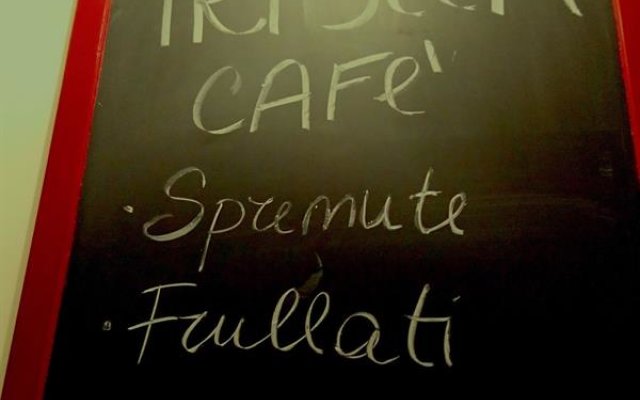 CAFè
· Spremute
· Frullati